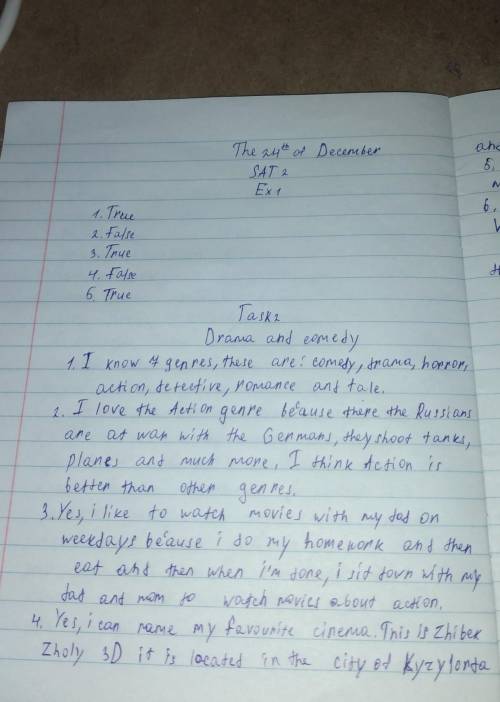 The 24th of December
SAT 2
Ex 1
1. True
2. False
3. True
4. False
5. True
Task 2
Drama and comedy
1. I know 7 genres, these are: comedy, drama, horror,
action, detective, romance and tale.
2. I love the Action genre because there the Russians
are at war with the Germans, they shoot tanks,
planes and much more. I think Action is
better than other genres.
3. Yes, i like to watch movies with my dad on
weekdays because i do my homework and then
eat and then when i'm done, i sit down with my
dad and mom to watch movies about action.
4. Yes, i can name my favourite cinema. This is Zhibek
Zholy 3D it is located in the city of Kyzylorda
and
5.
6.